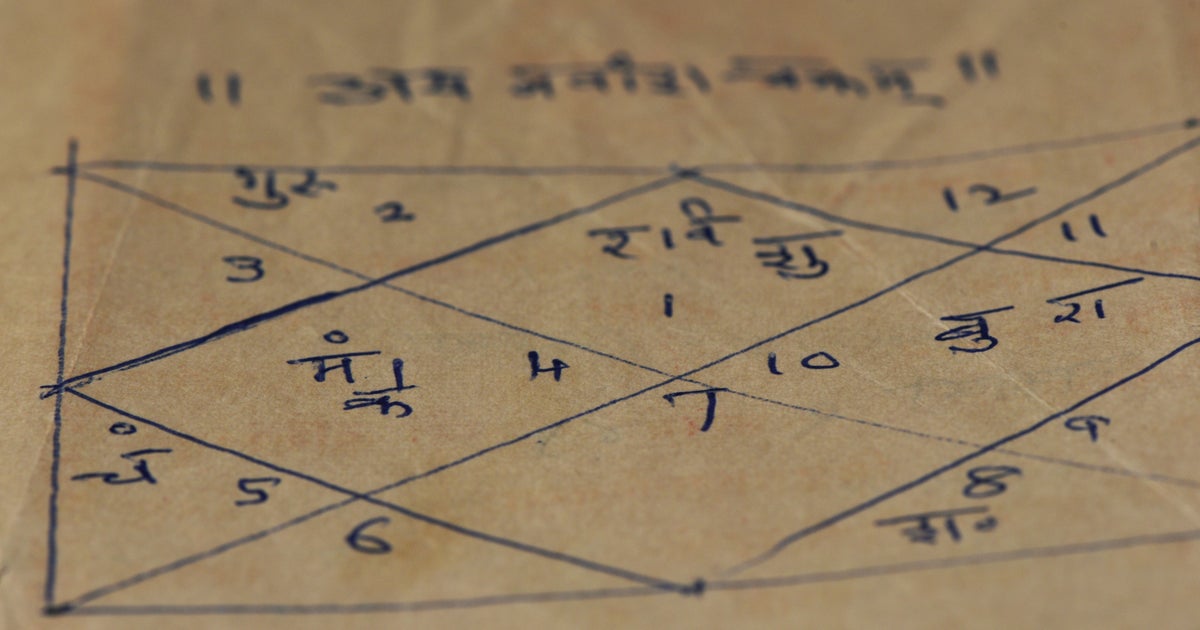 ॥ अथ नवांश चक्रम् ॥
गुरु 2
12
3
रवि शु
11
1
बु रा
मं के
4
10
7
9
चं
5
6
8
श०